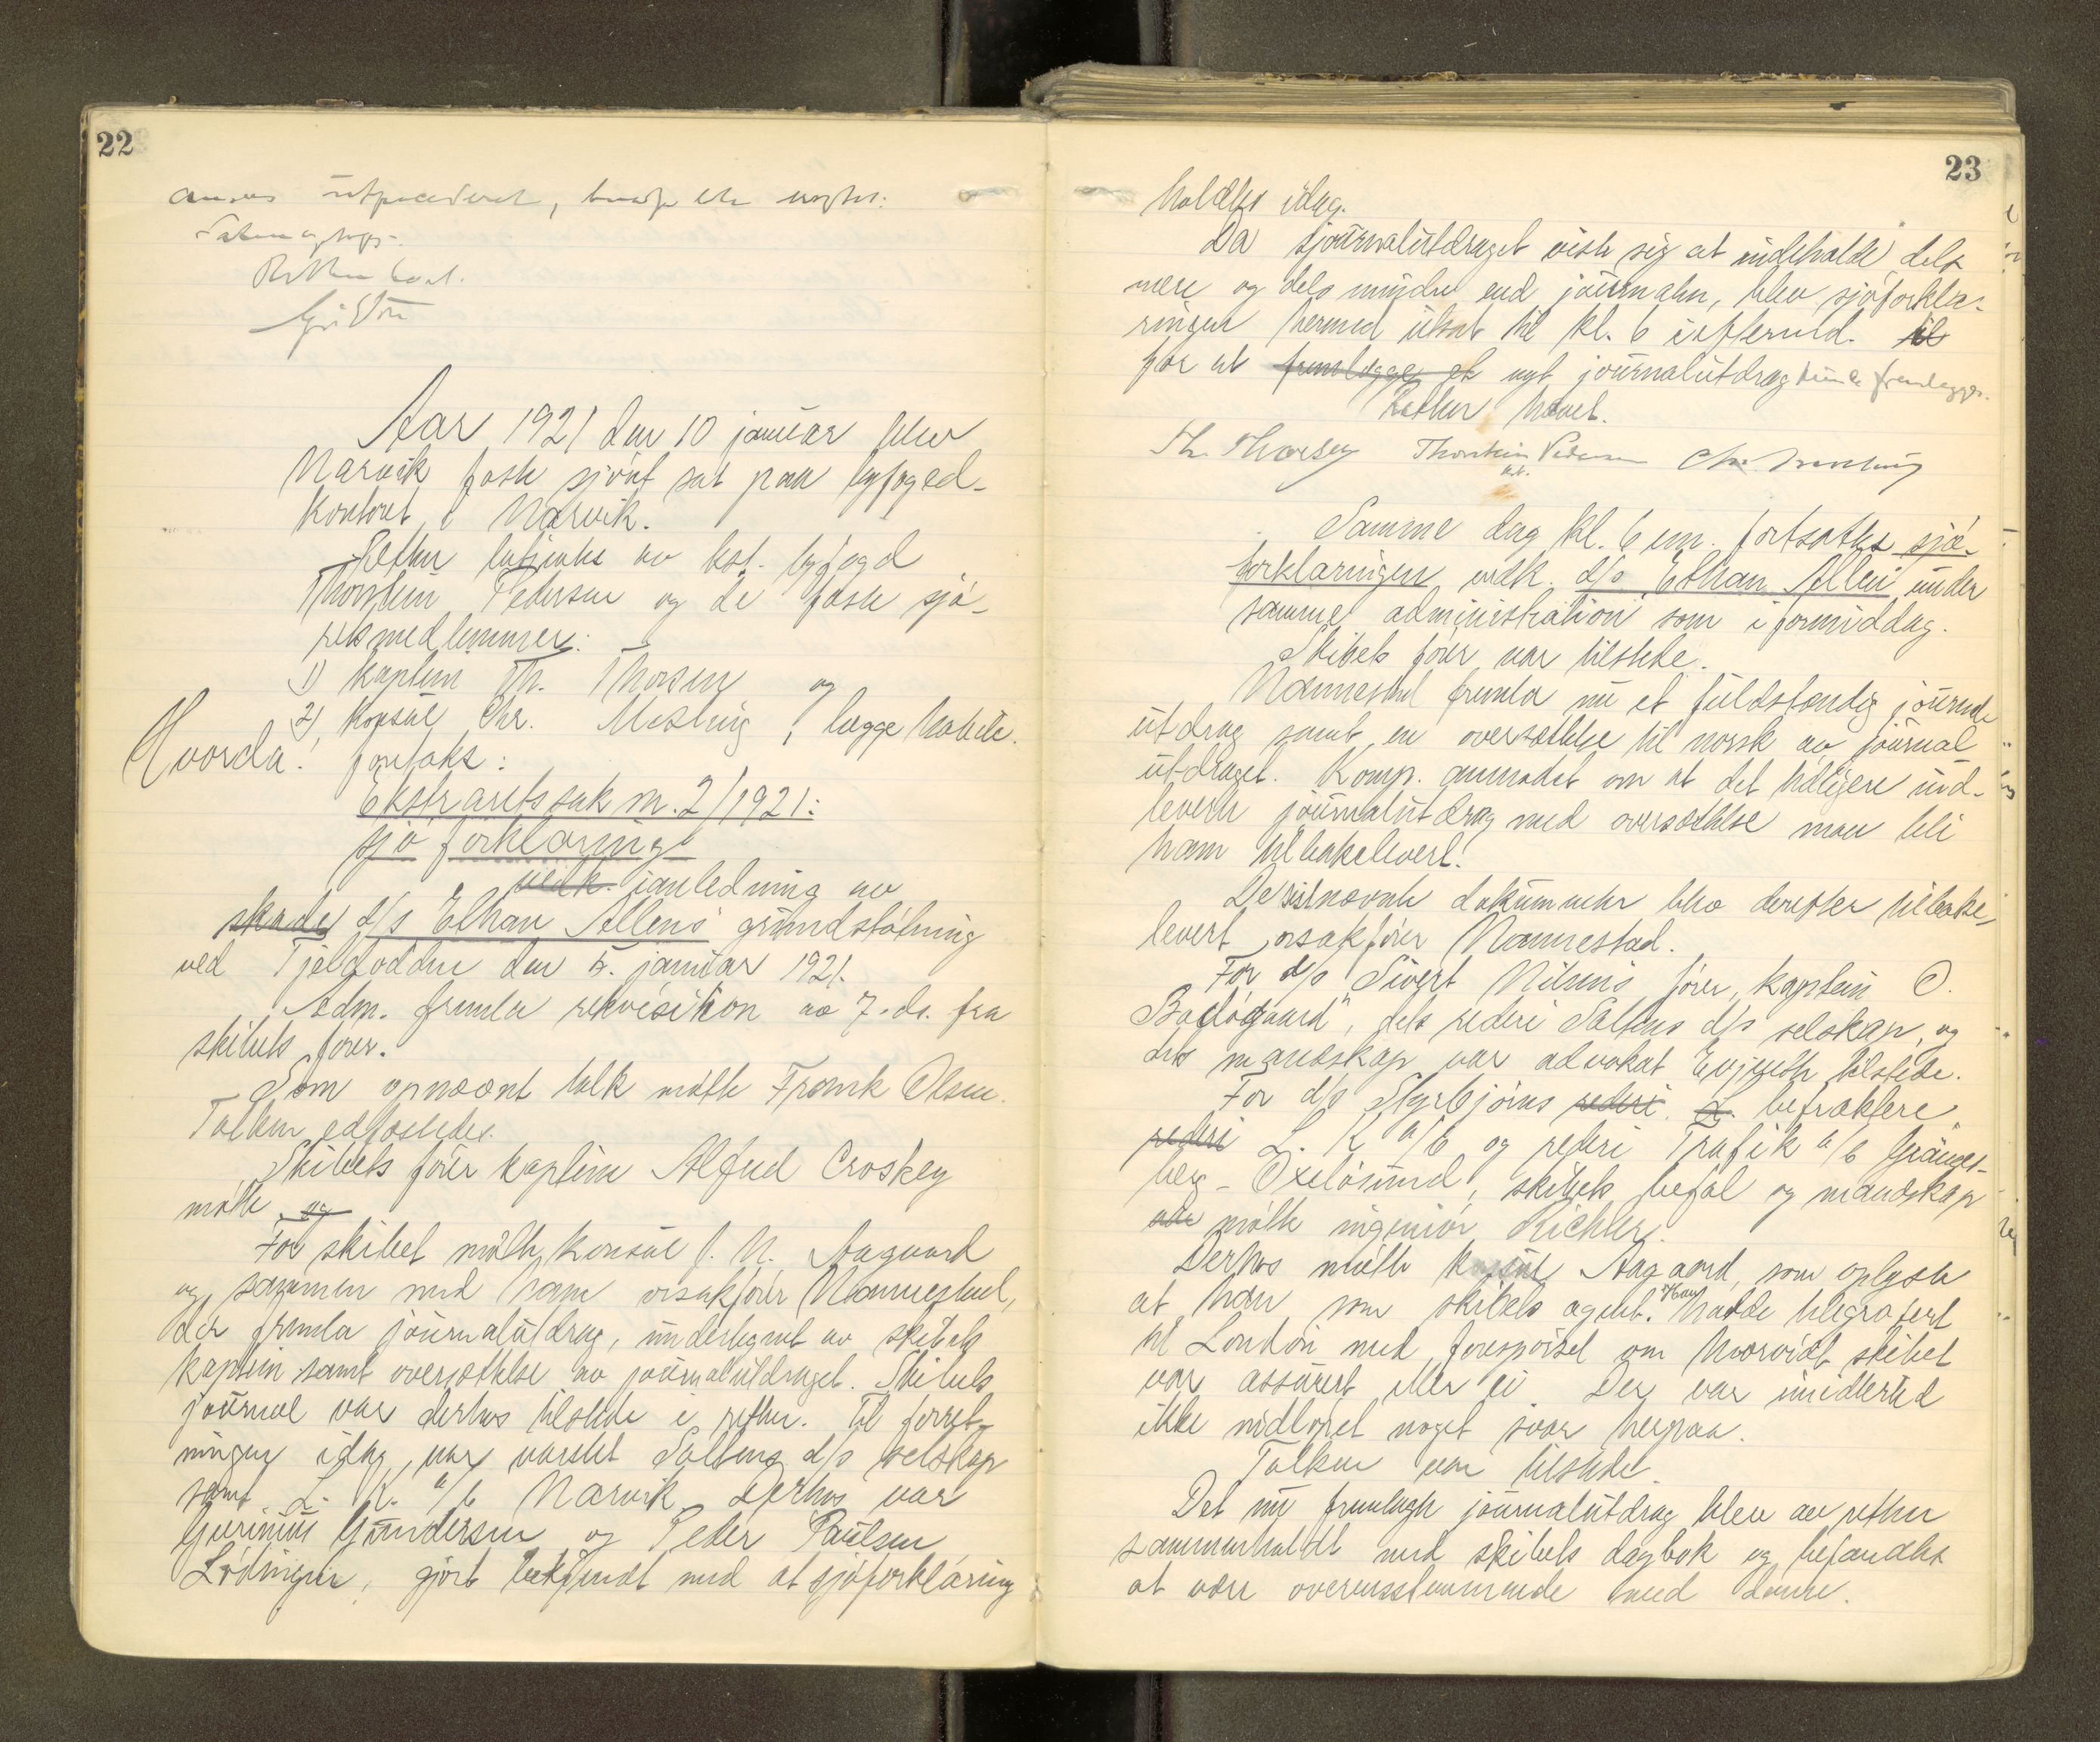 22
Retten hævet.
Aar 1921 den 10 januar blev
Narvik faste sjöret sat paa byfoged-
kontoret i Narvik.
Retten betjentes av kst. byfogd
Thorstein Pedersen og de faste sjö-
retsmedlemmer:
1) kaptein Th. Thorsen og
2) konsul Chr. Mosling, begge tilstede.
Hvorda! foretoks:
Ekstraretssak nr. 2/1921:
sjöforklaring
vedk. i anledning av
skade d/s "Ethan Allens" grundstötning
ved Tjeldodden den 5. januar 1921.
Adm. fremla rekvisition av 7. ds. fra
skibets förer.
Som opnævnt tolk mötte Frank Olsen.
Tolken edfæstedes.
Skibets förer kaptein Alfred Croskey
mötte og
For skibet mötte konsul J. N. Aagaard
og sammen med ham orsakförer Nannestad,
der fremla journalutdrag, undertegnet av skibets
kaptein samt oversættelse av journalutdraget. Skibets
journal var derhos tilstede i retten. Til forret-
ningen idag var varslet Saltens d/s selskap
samt L. K. a/b Narvik. Derhos var
Gundersen og Peder Paulsen
Lödingen, gjort bekjendt med at sjöforklaring
23
holdtes idag.
Da journalutdraget viste sig at indeholde dels
mere og dels mindre end journalen, blev sjöforkla-
ringen hermed utsat til kl. 6 i efterm. til
for at fremlægge et nyt journalutdrag kunde fremlægges.
Retten hævet.
Th. Thorsen Thorstein Pedersen Chr. Mosling
kst.
Samme dag kl. 6 em. fortsattes sjö-
forklaringen vedk. d/s "Ethan Allen" under
samme administration som i formiddag.
Skibets förer var tilstede.
Nannestad fremla nu et fuldstændig journal
utdrag samt en oversættelse til norsk av journal
utdraget. Komp. anmodet om at det tidligere ind-
leverte journalutdrag med oversættelse maa bli
ham tilbakelevert.
De sistnævnte dokumenter blev derefter tilbake-
levert orsakförer Nannestad.
For d/s "Sivert Nielsens" förer, kaptein O.
dets rederi Saltens d/s selskap, og
dets mandskap var advokat Evjenth tilstede.
For d/s Styrbjörns rederi. L. befraktere
rederi L. K. a/b og rederi Trafik a/b Gränges-
berg-Oxelösund, skibets befal og mandskap
var mötte ingeniör Richter.
Derhos mötte konsul Aagaard, som oplyste
at han som skibets agent hadde telegrafert
til London med forespörsel om hvorvidt skibet
var assurert eller ei. Der var imidlertid
ikke indlöpet noget svar herpaa.
Tolken var tilstede.
Det nu fremlagte journalutdrag blev av retten
sammenholdt med skibets dagbok og befandtes
at være overensstemmende med denne.